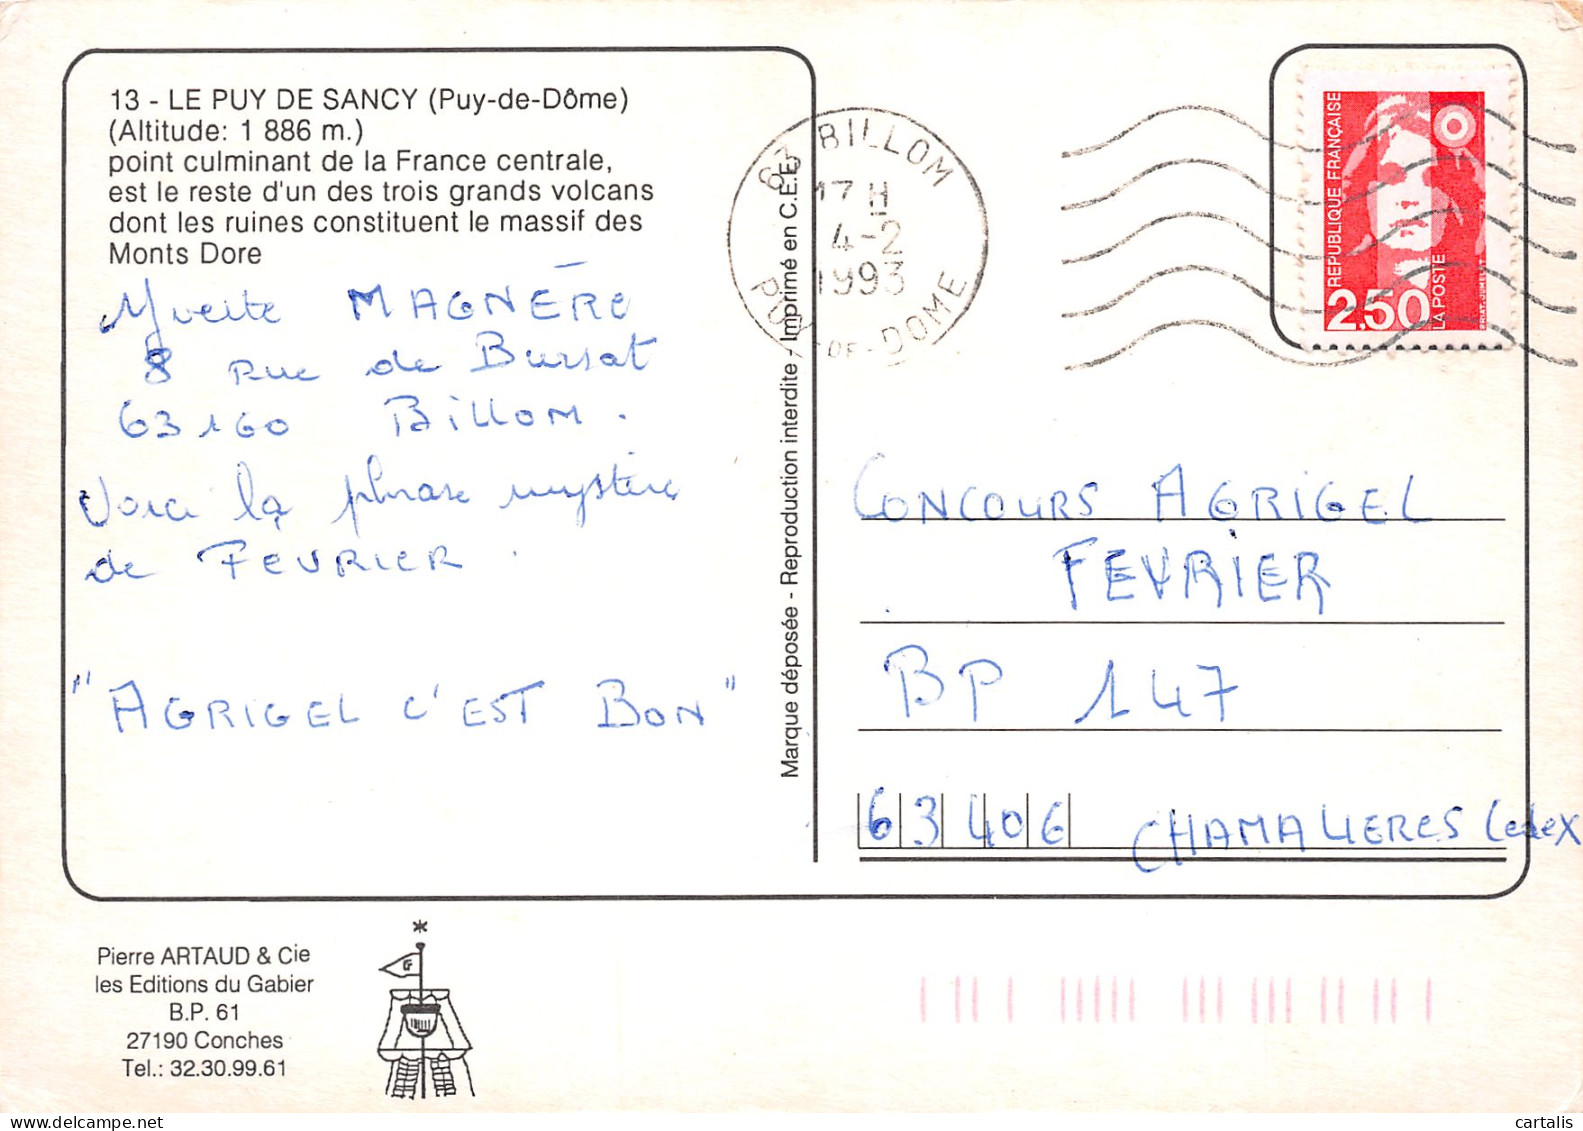 13 - LE PUY DE SANCY (Puy-de-Dôme)
(Altitude: 1 886 m.)
point culminant de la France centrale,
est le reste d'un des trois grands volcans
dont les ruines constituent le massif des
Monts Dore
Yvette MAGNÈRE
8 Rue de Bursat
63160 Billom.
Voici la phrase mystère
de FEVRIER.
"AGRIGEL C'EST BON"
Marque déposée - Reproduction interdite - Imprimé en C.E.E.
63 BILLOM
17 H
4-2
1993
PUY-DE-DOME
REPUBLIQUE FRANÇAISE
2,50
LA POSTE
CONCOURS AGRIGEL
FEVRIER
BP 147
63406 CHAMALIERES Cedex
Pierre ARTAUD & Cie
les Editions du Gabier
B.P. 61
27190 Conches
Tel.: 32.30.99.61
www.delcampe.net
cartalis